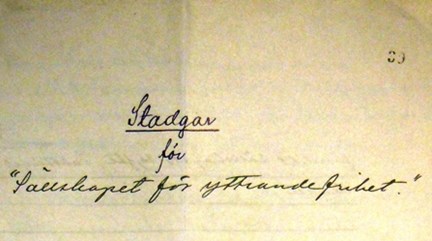 39
Stadgar
för
"Sällskapet för yttrandefrihet."